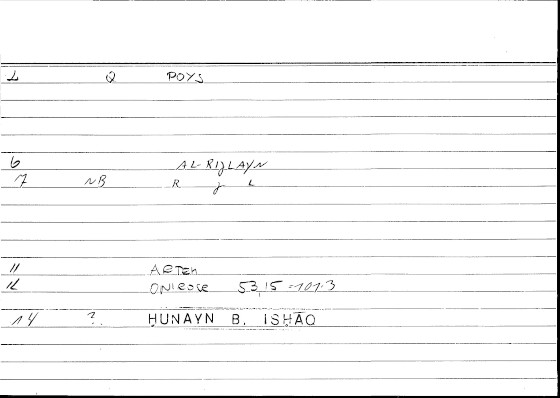 1 Q POYS
6 AL RIJLAYN
7 NB R J L
11 ARTEM
12 ONIROCR 53,15 = 101.3
14 ?. ḤUNAYN B. ISḤĀQ